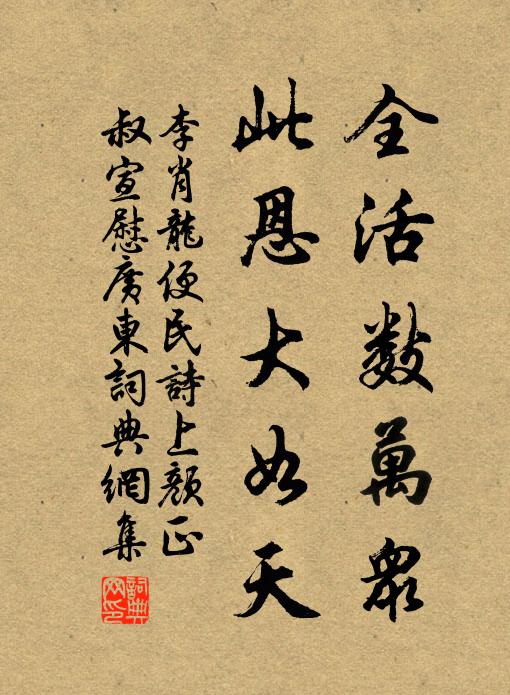 全活數萬眾
此恩大如天
李肖龍便民詩上顏正
叔宣慰廣東詞典網集
詞典
网印